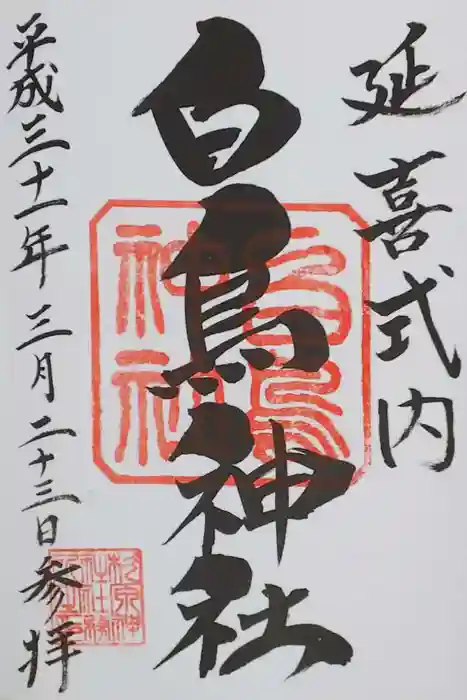 延喜式内
白鳥神社
平成三十一年三月二十三日参拝
白鳥
神社